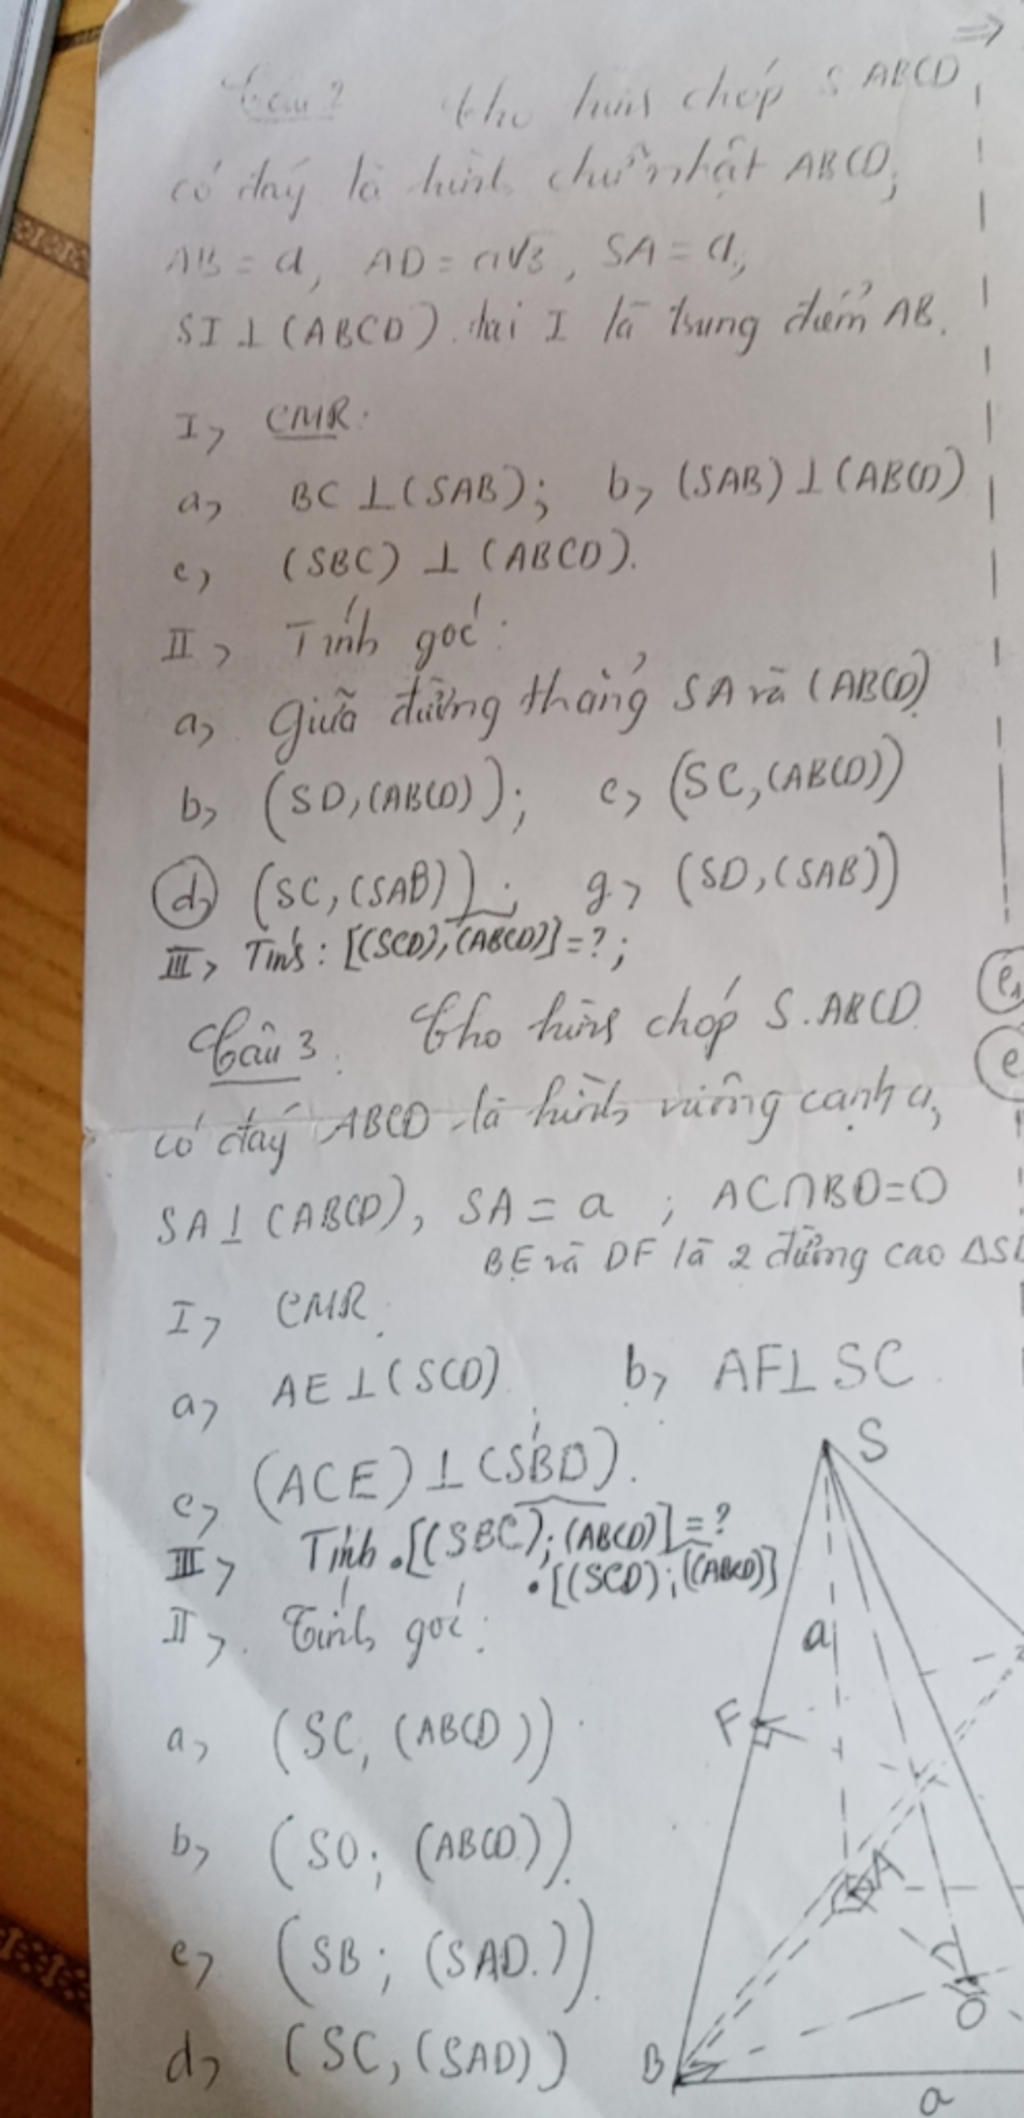 ⇒
Câu 2 Cho hình chóp S ABCD
có đáy là hình chữ nhật ABCD;
AB = a, AD = a√3, SA = a,
SI ⊥ (ABCD). tại I là trung điểm AB.
I, CMR:
a, BC ⊥ (SAB); b, (SAB) ⊥ (ABCD)
c, (SBC) ⊥ (ABCD).
II, Tính góc:
a, Giữa đường thẳng SA và (ABCD)
b, (SD,(ABCD)); c, (SC,(ABCD))
d, (SC,(SAB)); g, (SD,(SAB))
III, Tính: [(SCD),(ABCD)]=?;
Câu 3. Cho hình chóp S.ABCD
có đáy ABCD là hình vuông cạnh a,
SA ⊥ (ABCD), SA = a ; AC∩BD=O
BE và DF là 2 đường cao ΔS
I, CMR.
a, AE ⊥ (SCD) b, AF ⊥ SC.
c, (ACE) ⊥ (SBD).
III, Tính.[(SBC);(ABCD)]=?
•[(SCD);(ABCD)]
II, Tính góc:
a, (SC, (ABCD))
b, (SO; (ABCD)).
c, (SB; (SAD.)).
d, (SC, (SAD))
e
e
S
a
F
A
O
B
a